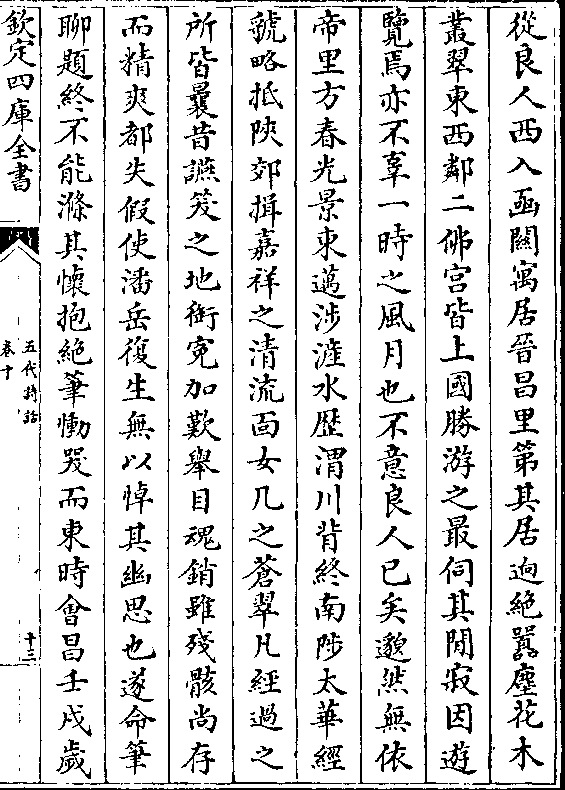 從良人西入函關寓居晉昌里第其居迥絶囂塵花木
叢翠東西鄰二佛宮皆上國勝游之最伺其閒寂因遊
覽焉亦不辜一時之風月也不意良人已矣邈然無依
帝里方春光景東邁涉滻水歷渭川背終南陟太華經
虢略抵陜郊揖嘉祥之清流面女几之蒼翠凡經過之
所皆曩昔讌笑之地銜寃加歎舉目魂銷雖殘骸尚存
而精爽都失假使潘岳復生無以悼其幽思也遂命筆
聊題終不能滌其懷抱絶筆慟哭而東時會昌壬戌歲
欽定四庫全書
五代詩話
卷十
十三